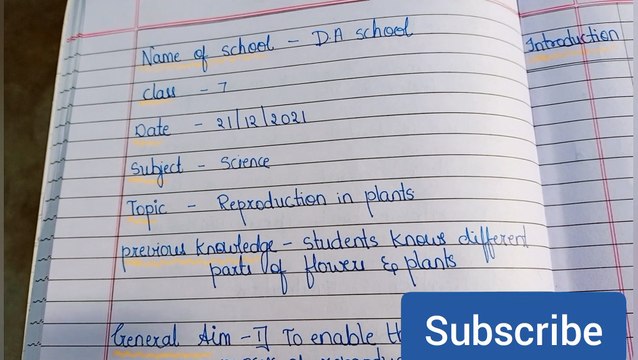 Name of school - D.A school
Introduction
Class - 7
Date - 21/12/2021
Subject - Science
Topic - Reproduction in plants
previous knowledge - students knows different
parts of flowers & plants
General Aim - 1] To enable
Subscribe